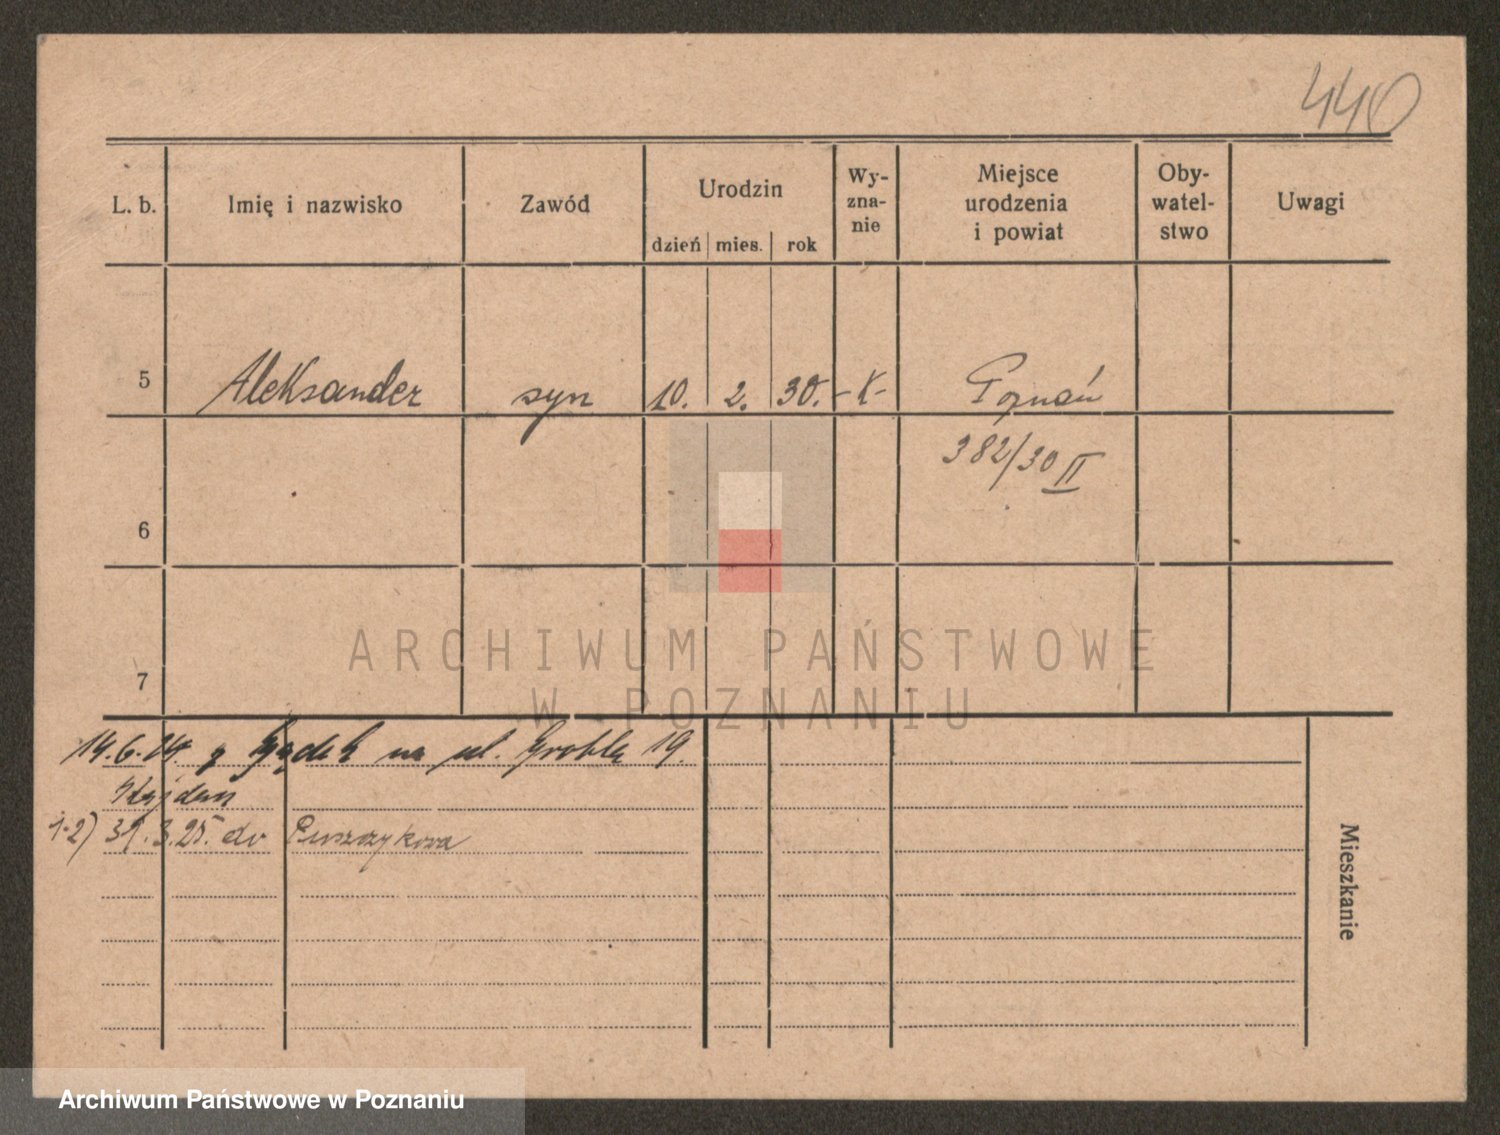 440
L. b. Imię i nazwisko Zawód Urodzin dzień mies. rok Wy-zna-nie Miejsce urodzenia i powiat Oby-watel-stwo Uwagi
5 Aleksander syn 10. 2. 30. -k- Poznań
382/30 II
6
7
14.6.24. z na ul. Grobla 19.
1-2) 31.3.25. do Puszczykowa
Mieszkanie
ARCHIWUM PAŃSTWOWE
W POZNANIU
Archiwum Państwowe w Poznaniu